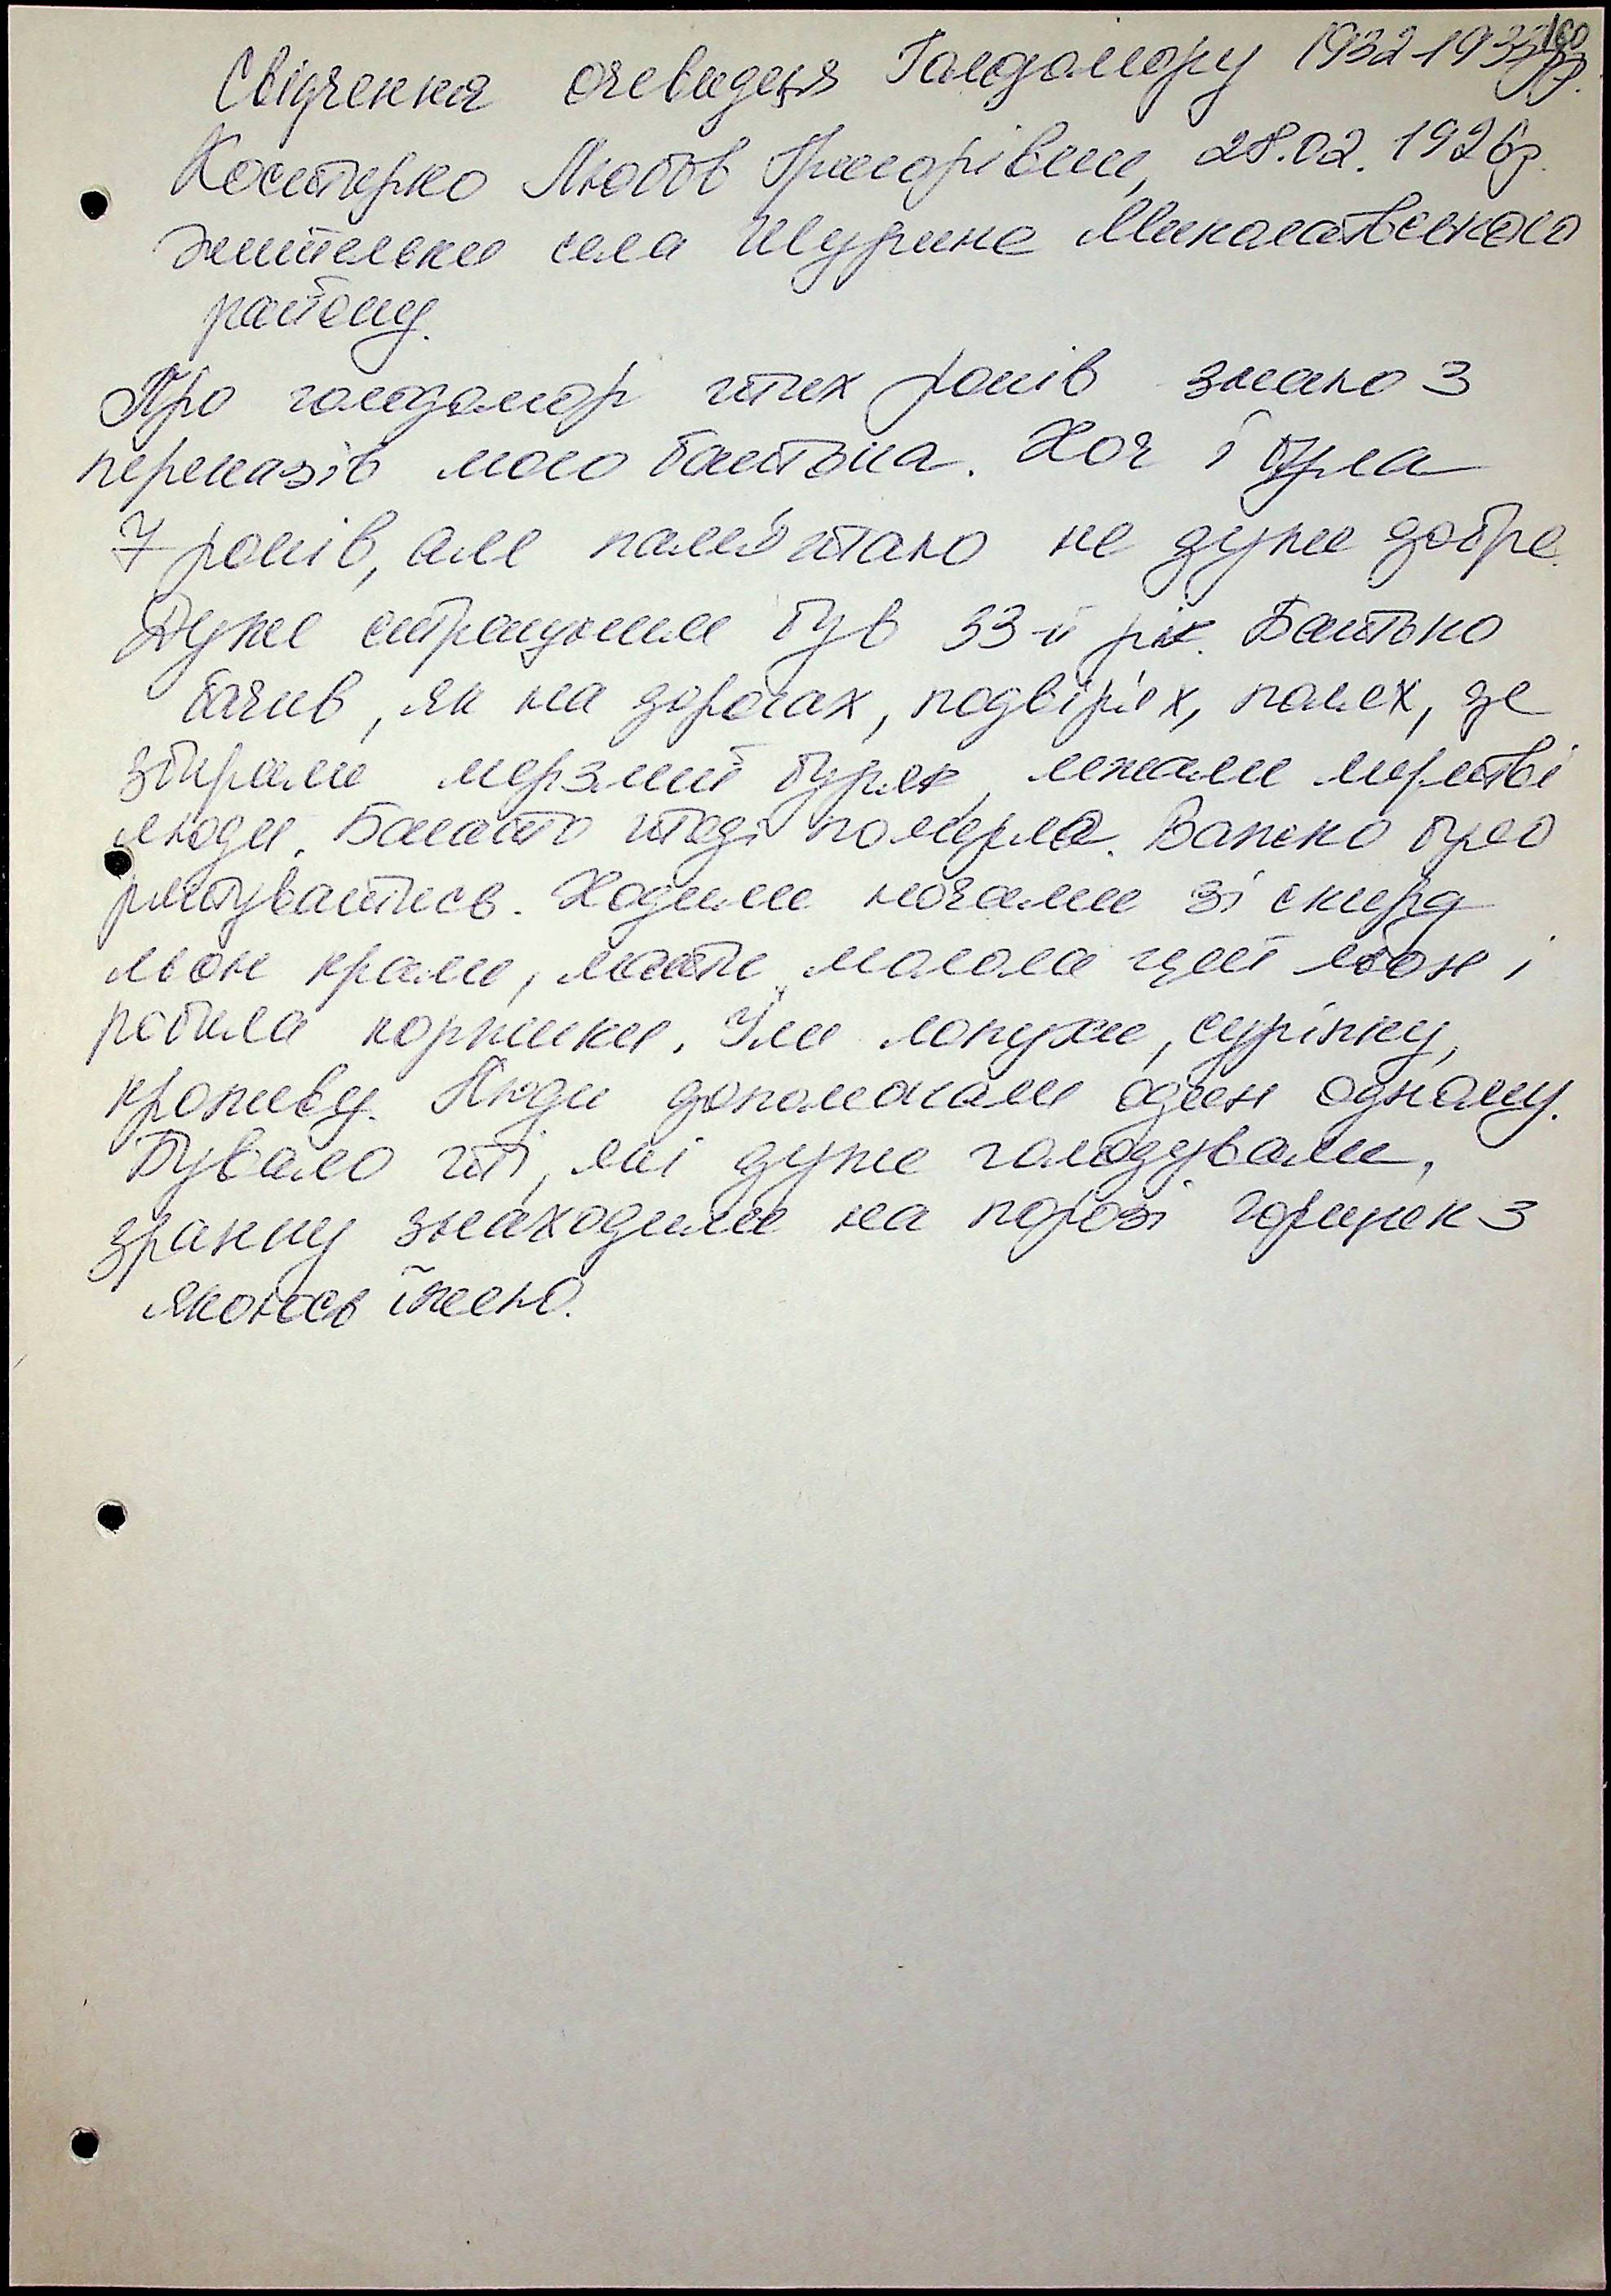 160
Свідчення очевидця Голодомору 1932-1933рр.
Костирко Любов Григорівни, 28.02.1926р.
жительки села Шурине Миколаївського
району.
Про голодомор тих років знаю з
переказів мого батька. Хоч і була
7 років, але пам'ятаю не дуже добре.
Дуже страшним був 33-й рік. Батько
бачив, як на дорогах, подвір'ях, полях, де
збирали мерзлий буряк, лежали мертві
люди. Багато тоді померло. Важко було
рятуватись. Ходили ночами зі скирд
льон крали, мати молола цей льон і
робила коржики. Їли лопухи, суріпку,
кропиву. Люди допомагали один одному.
Бувало ті, які дуже голодували,
зранку знаходили на порозі горщик з
якоюсь їжею.